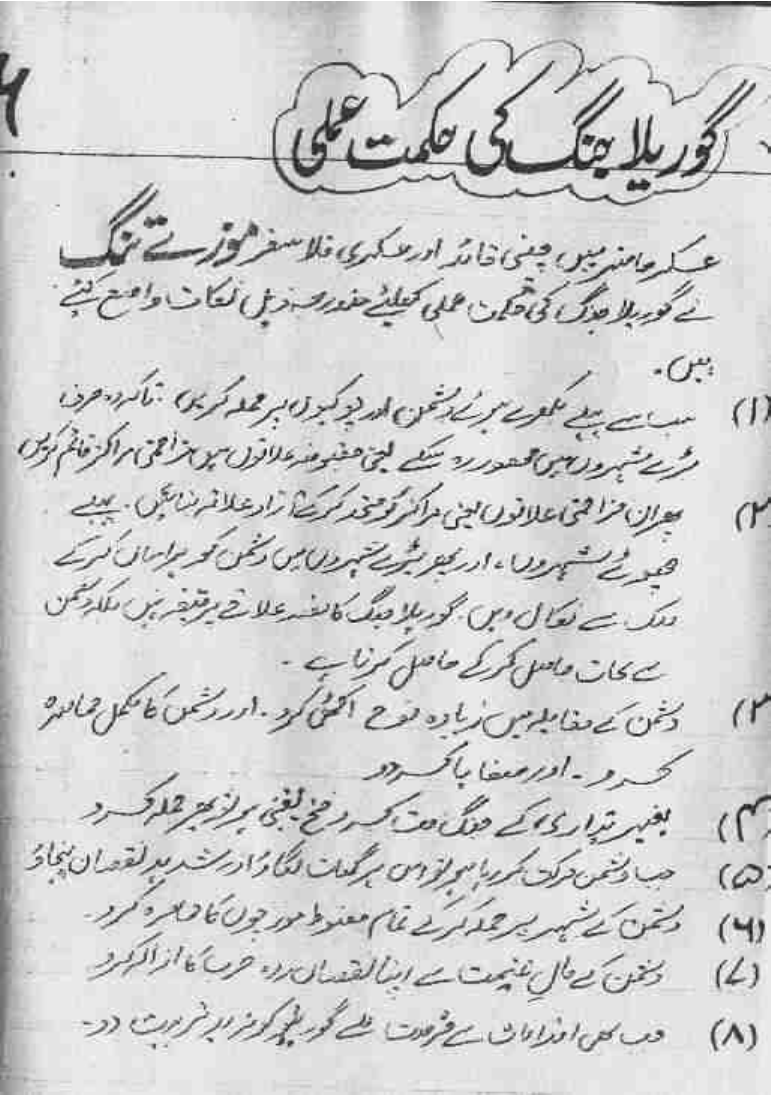 گوریلا جنگ کی حکمت عملی
عسکر حاضر میں چینی قائد اور عسکری فلاسفر موزے تنگ
نے گوریلا جنگ کی حکمت عملی کیلئے مندرجہ ذیل نکات واضع کئے
ہیں۔
(۱) سب سے پہلے بکھرے ہوئے دشمن اور چوکیوں پر حملہ کریں تاکہ وہ صرف
بڑے شہروں میں محصور رہ سکے یعنی مقبوضہ علاقوں میں مزاحمتی مراکز قائم کریں
(۲) پھر ان مزاحمتی علاقوں یعنی مراکز کو متحد کرکے آزاد علاقہ بنائیں۔ پہلے
چھوٹے شہروں، اور پھر بڑے شہروں میں دشمن کو ہراساں کرکے
ملک سے نکال دیں۔ گوریلا جنگ کا مقصد علاقے پر قبضہ نہیں بلکہ دشمن
سے نجات حاصل کرکے حاصل کرنا ہے۔
(۳) دشمن کے مقابلہ میں زیادہ فوج اکھٹی کرو۔ اور دشمن کا مکمل محاصرہ
کرو۔ اور صفایا کردو
(۴) بغیر تیاری کے جنگ مت کرو فتح یقینی ہو تو پھر حملہ کرو
(۵) جب دشمن حرکت کررہا ہو تو اس پر گھات لگاؤ اور شدید نقصان پہنچاؤ
(۶) دشمن کے شہر پر حملہ کرکے تمام مضبوط مورچوں کا محاصرہ کرو۔
(۷) دشمن کے مال غنیمت سے اپنا نقصان زدہ حرب کا ازالہ کرو۔
(۸) جب بھی اقدامات سے فرصت ملے گوریلوں کو مزید تربیت دو۔